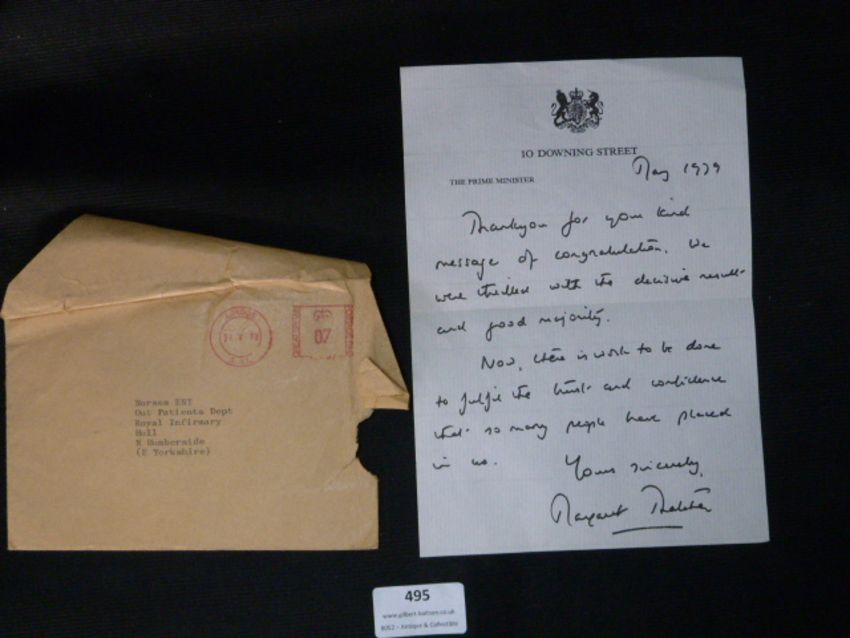 10 DOWNING STREET
THE PRIME MINISTER
May 1979
Thankyou for your kind
message of congratulation. We
were thrilled with the decisive result
and good majority.
Now, there is work to be done
to fulfil the trust and confidence
that so many people have placed
in us.
Yours sincerely,
Margaret Thatcher
LONDON
07
Nurses ENT
Out Patients Dept
Royal Infirmary
Hull
N Humberside
(E Yorkshire)
495
www.gilbert-baitson.co.uk
- Antique & Collectible